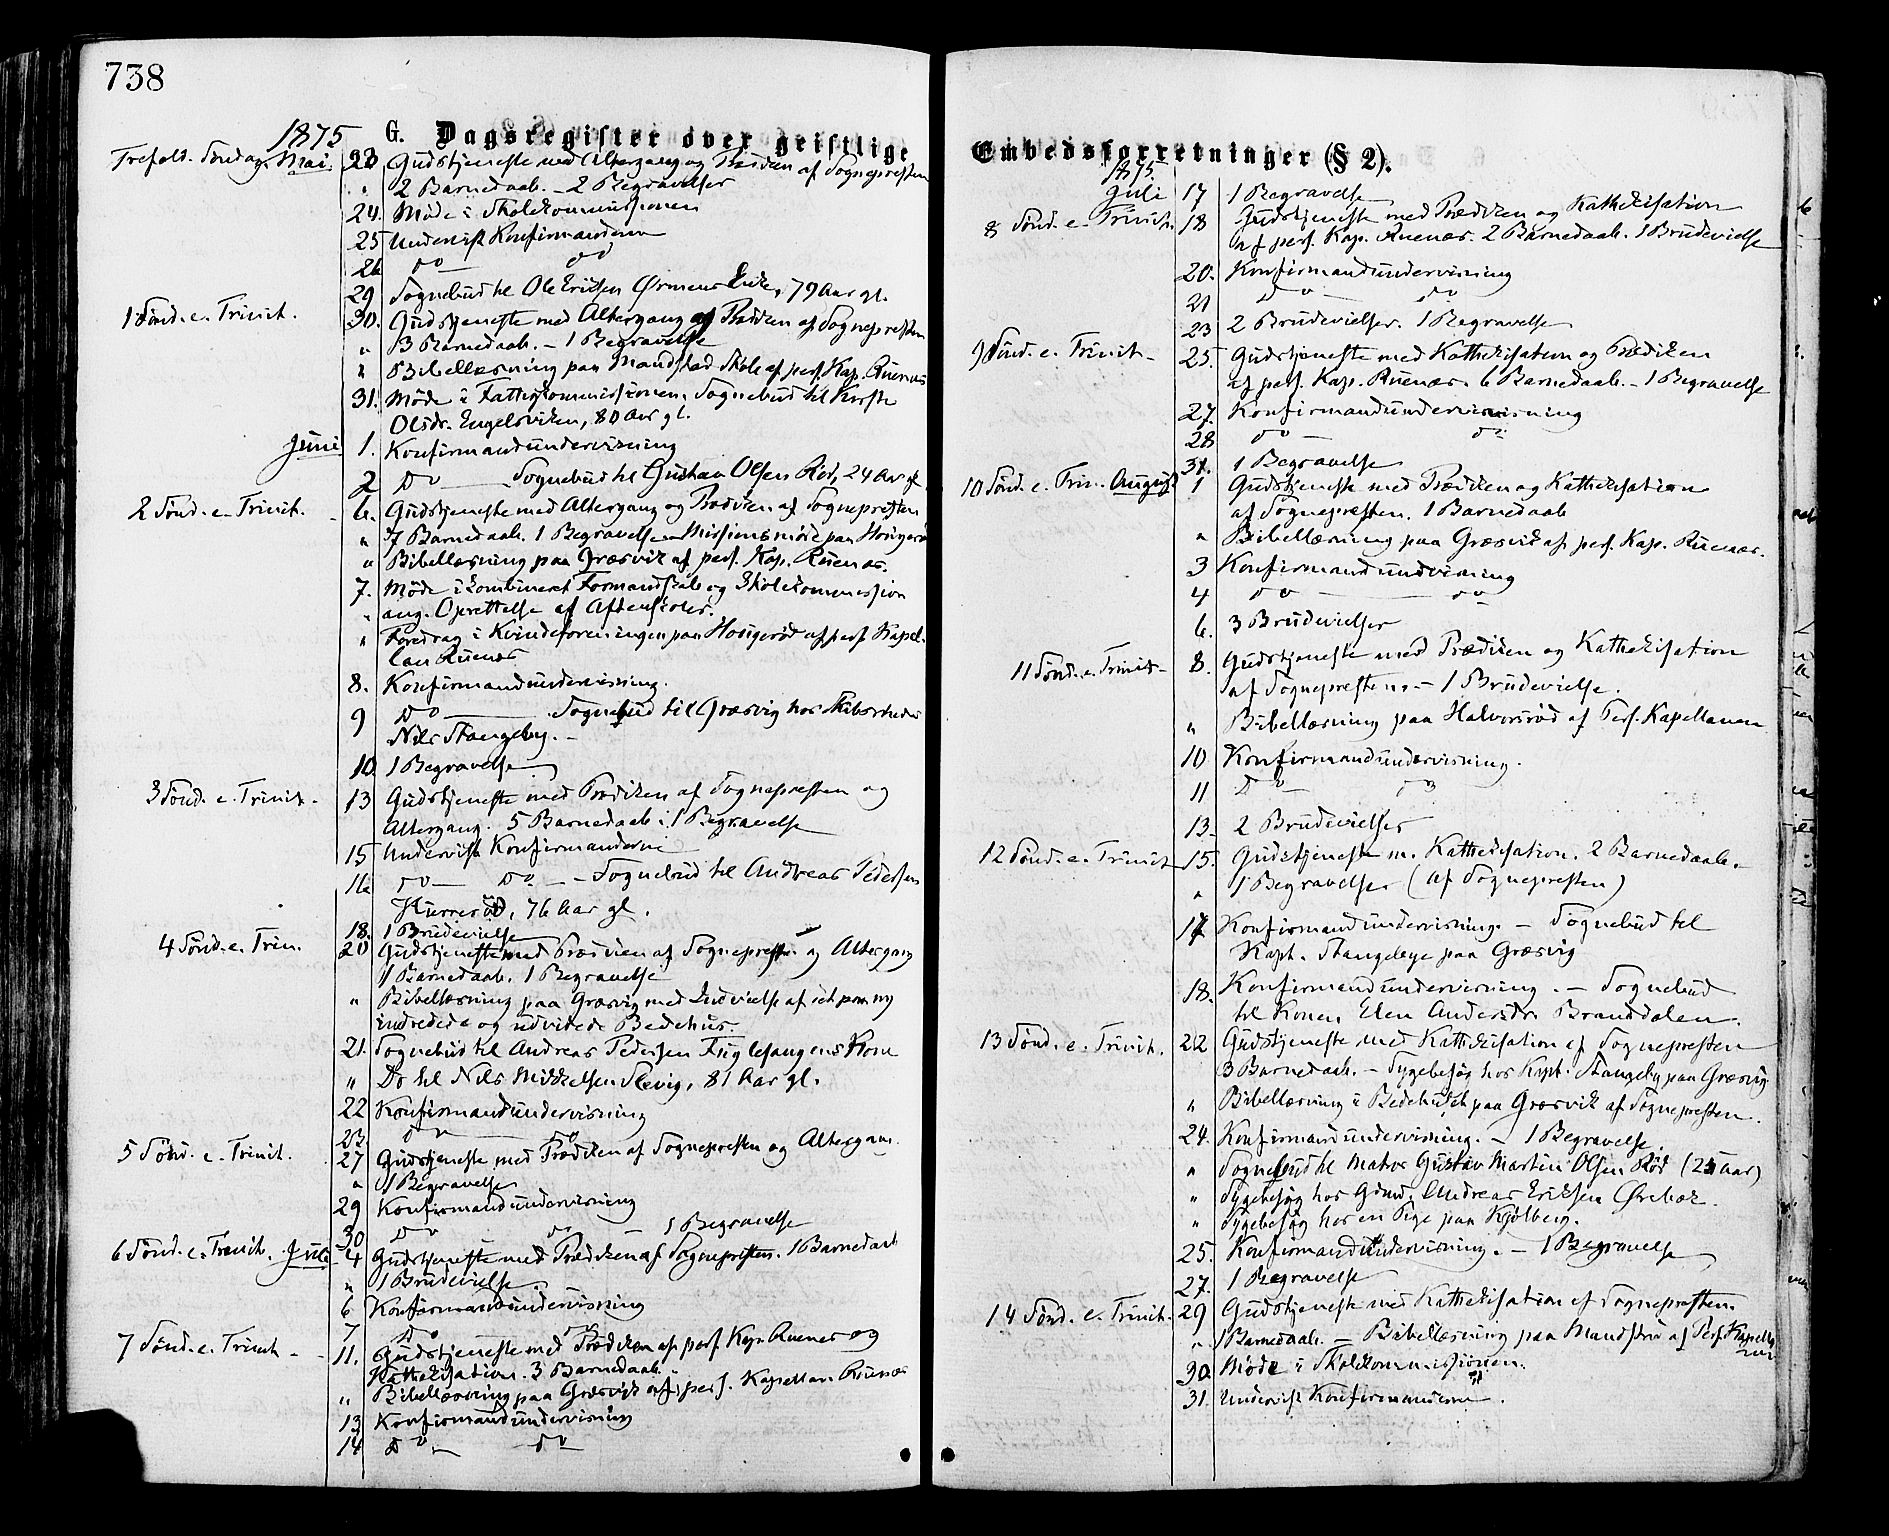 738
1875 G. Dagsregister over geistlige
Trefold. Søndag Mai 23 Gudstjeneste med Altergang og Prædiken af Sognepresten
" 2 Barnedaab. – 2 Begravelser
24. Møde i Skolekommissionen
25 Undervist Konfirmanderne
26 do — do
29 Sognebud til Ole Eriksen Ørmen Erike, 79 Aar gl.
1 Sønd. e. Trinit. 30. Gudstjeneste med Altergang og Prædiken af Sognepresten
" 3 Barnedaab. – 1 Begravelse
" Bibellæsning paa Mandstad Skole af pers. Kap. Ruenæs
31. Møde i Fattigkommissionen. Sognebud til Kirste
Olsdr. Engelsviken, 80 Aar gl.
Juni 1. Konfirmandundervisning
2 Do — Sognebud til Gustav Olsen Rød, 24 Aar gl.
2 Sønd. e. Trinit. 6. Gudstjeneste med Altergang og Prædiken af Sognepresten
" 7 Barnedaab. 1 Begravelse – Missionsmøde paa Hougerø
" Bibellæsning paa Græsvik af pers. Kap. Ruenæs.
7. Møde i kombineret Formandskab og Skolekommission
" ang. Oprettelse af Aftenskoler.
" Foredrag i Kvindeforeningen paa Hougerød af pers. Kapel-
lan Ruenæs
8. Konfirmandundervisning.
9 Do — Sognebud til Græsvig hos Skibsrheder
Nils Stangeby. –
10 1 Begravelse
3 Sønd. e. Trinit. 13 Gudstjeneste med Prædiken af Sognepresten og
Altergang. 5 Barnedaab. 1 Begravelse
15 Undervist Konfirmanderne
16 do — do — Sognebud til Andreas Pedersen
Kurrerød, 76 Aar gl.
18. 1 Brudevielse
4 Sønd. e. Trin. 20 Gudstjeneste med Prædiken af Sognepresten og Altergang
1 Barnedaab. 1 Begravelse
" Bibellæsning paa Græsvig med Indvielse af det paa ny
indredede og udvidede Bedehus.
21. Sognebud til Andreas Pedersen Fuglesangens Kone
" Do til Nils Mikkelsen Slevig, 81 Aar gl.
22 Konfirmandundervisning
23. do — do
5 Sønd. e. Trinit. 27 Gudstjeneste med Prædiken af Sognepresten og Altergan.
" 1 Begravelse
29 Konfirmandundervisning
30 Do — do — 1 Begravelse
6 Sønd. e. Trinit. Juli 4 Gudstjeneste med Prædiken af Sognepresten. 1 Barnedaab
" 1 Brudevielse.
6 Konfirmandundervisning
7 Do — do
7 Sønd. e. Trinit. – 11. Gudstjeneste med Prædiken af pers. Kap. Ruenæs og
Kathekisation. 3 Barnedaab.
" Bibellæsning paa Græsvik af pers. Kapellan Ruenæs
13 Konfirmandundervisning
14 Do — do
Embedsforretninger (§ 2).
1875.
Juli 17 1 Begravelse
8 Sønd. e. Trinit. 18 Gudstjeneste med Prædiken og Kathekisation
af pers. Kap. Ruenæs. 2 Barnedaab. 1 Brudevielse
20. Konfirmandundervisning
21 Do — do
23 2 Brudevielser. 1 Begravelse
9 Sønd. e. Trinit. 25. Gudstjeneste med Kathekisation og Prædiken
af pers. Kap. Ruenæs. 6 Barnedaab. – 1 Begravelse
27. Konfirmandundervisning
28 do — do
31. 1 Begravelse
10 Sønd. e. Trin. August 1 Gudstjeneste med Prædiken og Kathekisation
af Sognepresten. 1 Barnedaab
" Bibellæsning paa Græsvik af pers. Kap. Ruenæs.
3 Konfirmandundervisning
4 do — do
6. 3 Brudevielser
11 Sønd. e. Trinit. 8. Gudstjeneste med Prædiken og Kathekisation
af Sognepresten. – 1 Brudevielse.
" Bibellæsning paa Halvorsrød af Pers. Kapellanen
10 Konfirmandundervisning.
11 Do — do
13. 2 Brudevielser
12 Sønd. e. Trinit 15. Gudstjeneste m. Kathekisation. 2 Barnedaab.
" 1 Begravelse (af Sognepresten)
17 Konfirmandundervisning. – Sognebud til
Kapt. Stangebye paa Græsvig
18. Konfirmandundervisning. – Sognebud
til Konen Elen Andersdr. Branddalen.
13 Sønd. e. Trinit. 22 Gudstjeneste med Kathekisation af Sognepresten
3 Barnedaab. – Sygebesøg hos Kapt. Stangeby paa Græsvig
" Bibellæsning i Bedehuset paa Græsvik af Sognepresten.
24. Konfirmandundervisning. – 1 Begravelse.
" Sognebud til Matros Gustav Martin Olsen Rød (25 aar)
" Sygebesøg hos Gmd. Andreas Eriksen Ørebæk
" Sygebesøg hos en Pige paa Kjølberg.
25. Konfirmandundervisning. – 1 Begravelse
27. 1 Begravelse
14 Sønd. e. Trinit. 29 Gudstjeneste med Kathekisation af Sognepresten
" 1 Barnedaab. – Bibellæsning paa Mandstad af Pers. Kapella-
nen
30 Møde i Skolekommissionen.
31. Undervist Konfirmanderne.